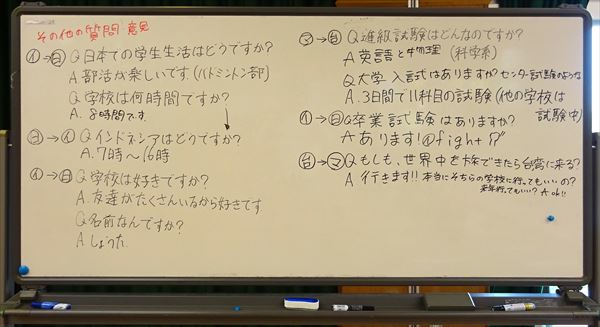 その他の質問 意見
イ→日 Q 日本での学生生活はどうですか?
A 部活が楽しいです(バトミントン部)
Q 学校は何時間ですか?
A. 8時間です
日→イ Q インドネシアはどうですか?
A. 7時〜16時
イ→日 Q 学校は好きですか?
A. 友達がたくさんいるから好きです
Q 名前なんですか?
A しょうた
マ→台 Q 進級試験はどんなのですか?
A 英語と物理 (科学系)
Q 大学入試はありますか センター試験のような
A. 3日間で11科目の試験(他の学校は
試験中)
イ→日 Q 卒業試験はありますか?
A あります! fight
台→マ Q もしも、世界中を できたら台湾に来る?
A 行きます!! 本当にそちらの学校に行ってもいいの?
来年行ってもいい? A ok!!